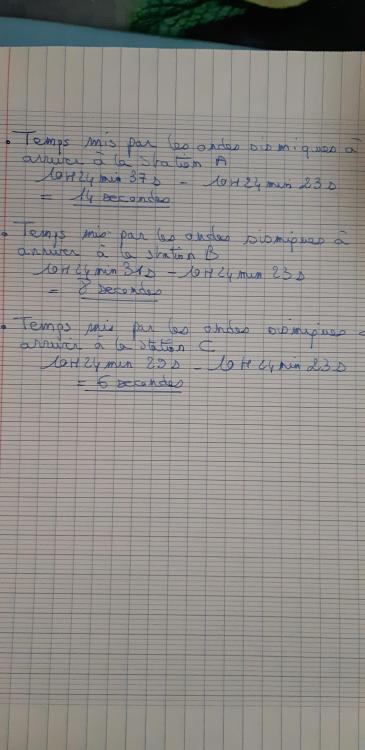 • Temps mis par les ondes sismiques à
arriver à la station A
10H24min 37s - 10H24min 23s
= 14 secondes
• Temps mis par les ondes sismiques à
arriver à la station B
10H24min 31s - 10H24min 23s
= 8 secondes
• Temps mis par les ondes sismiques
arriver à la station C
10H24min 29s - 10H24min 23s
= 6 secondes